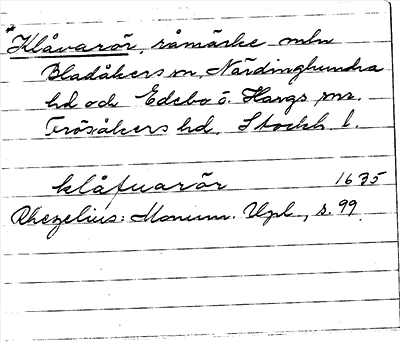 Klåvarör, råmärke mln
Bladåkers sn, Närdinghundra
hd och Edebo o. Hargs snr.
Frösåkers hd, Stockh. l.
klåfuarör 1635
Rhezelius: Monum. Upl., s. 99.